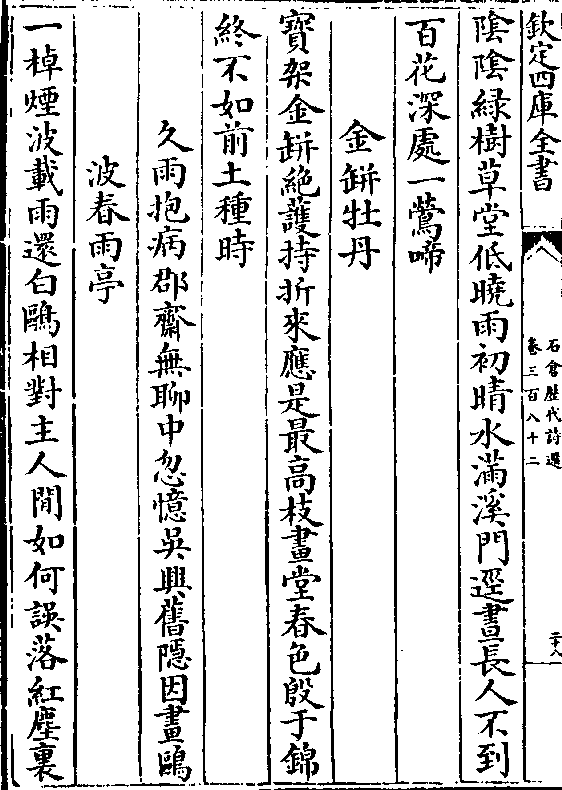 欽定四庫全書
石倉歴代詩選
卷三百八十二
二十八
陰陰緑樹草堂低曉雨初晴水滿溪門逕晝長人不到
百花深處一鶯啼
金缾牡丹
寳架金缾絶護持折來應是最高枝畫堂春色殷于錦
終不如前土種時
久雨抱病郡齋無聊中忽憶吳興舊隠因畫鷗
波春雨亭
一棹煙波載雨還白鷗相對主人閒如何誤落紅塵裏